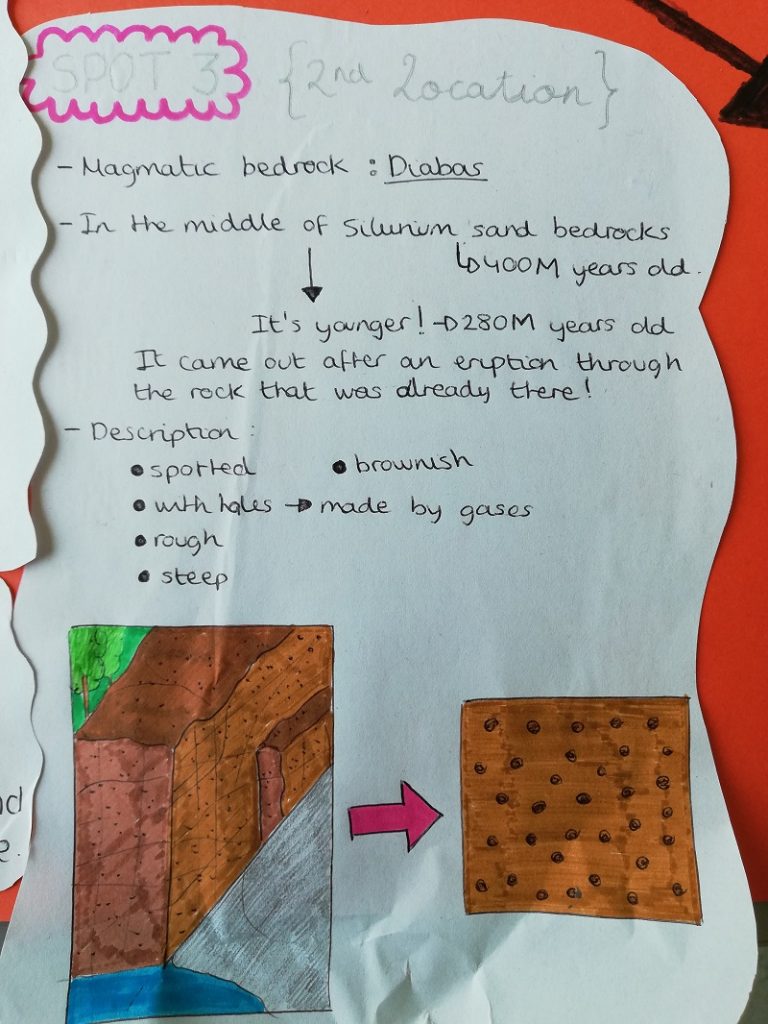 SPOT 3 {2nd Location}
- Magmatic bedrock : Diabas
- In the middle of Silurium sand bedrocks
400M years old.
It's younger! → 280M years old
It came out after an eruption through
the rock that was already there!
- Description :
• spotted • brownish
• with holes → made by gases
• rough
• steep